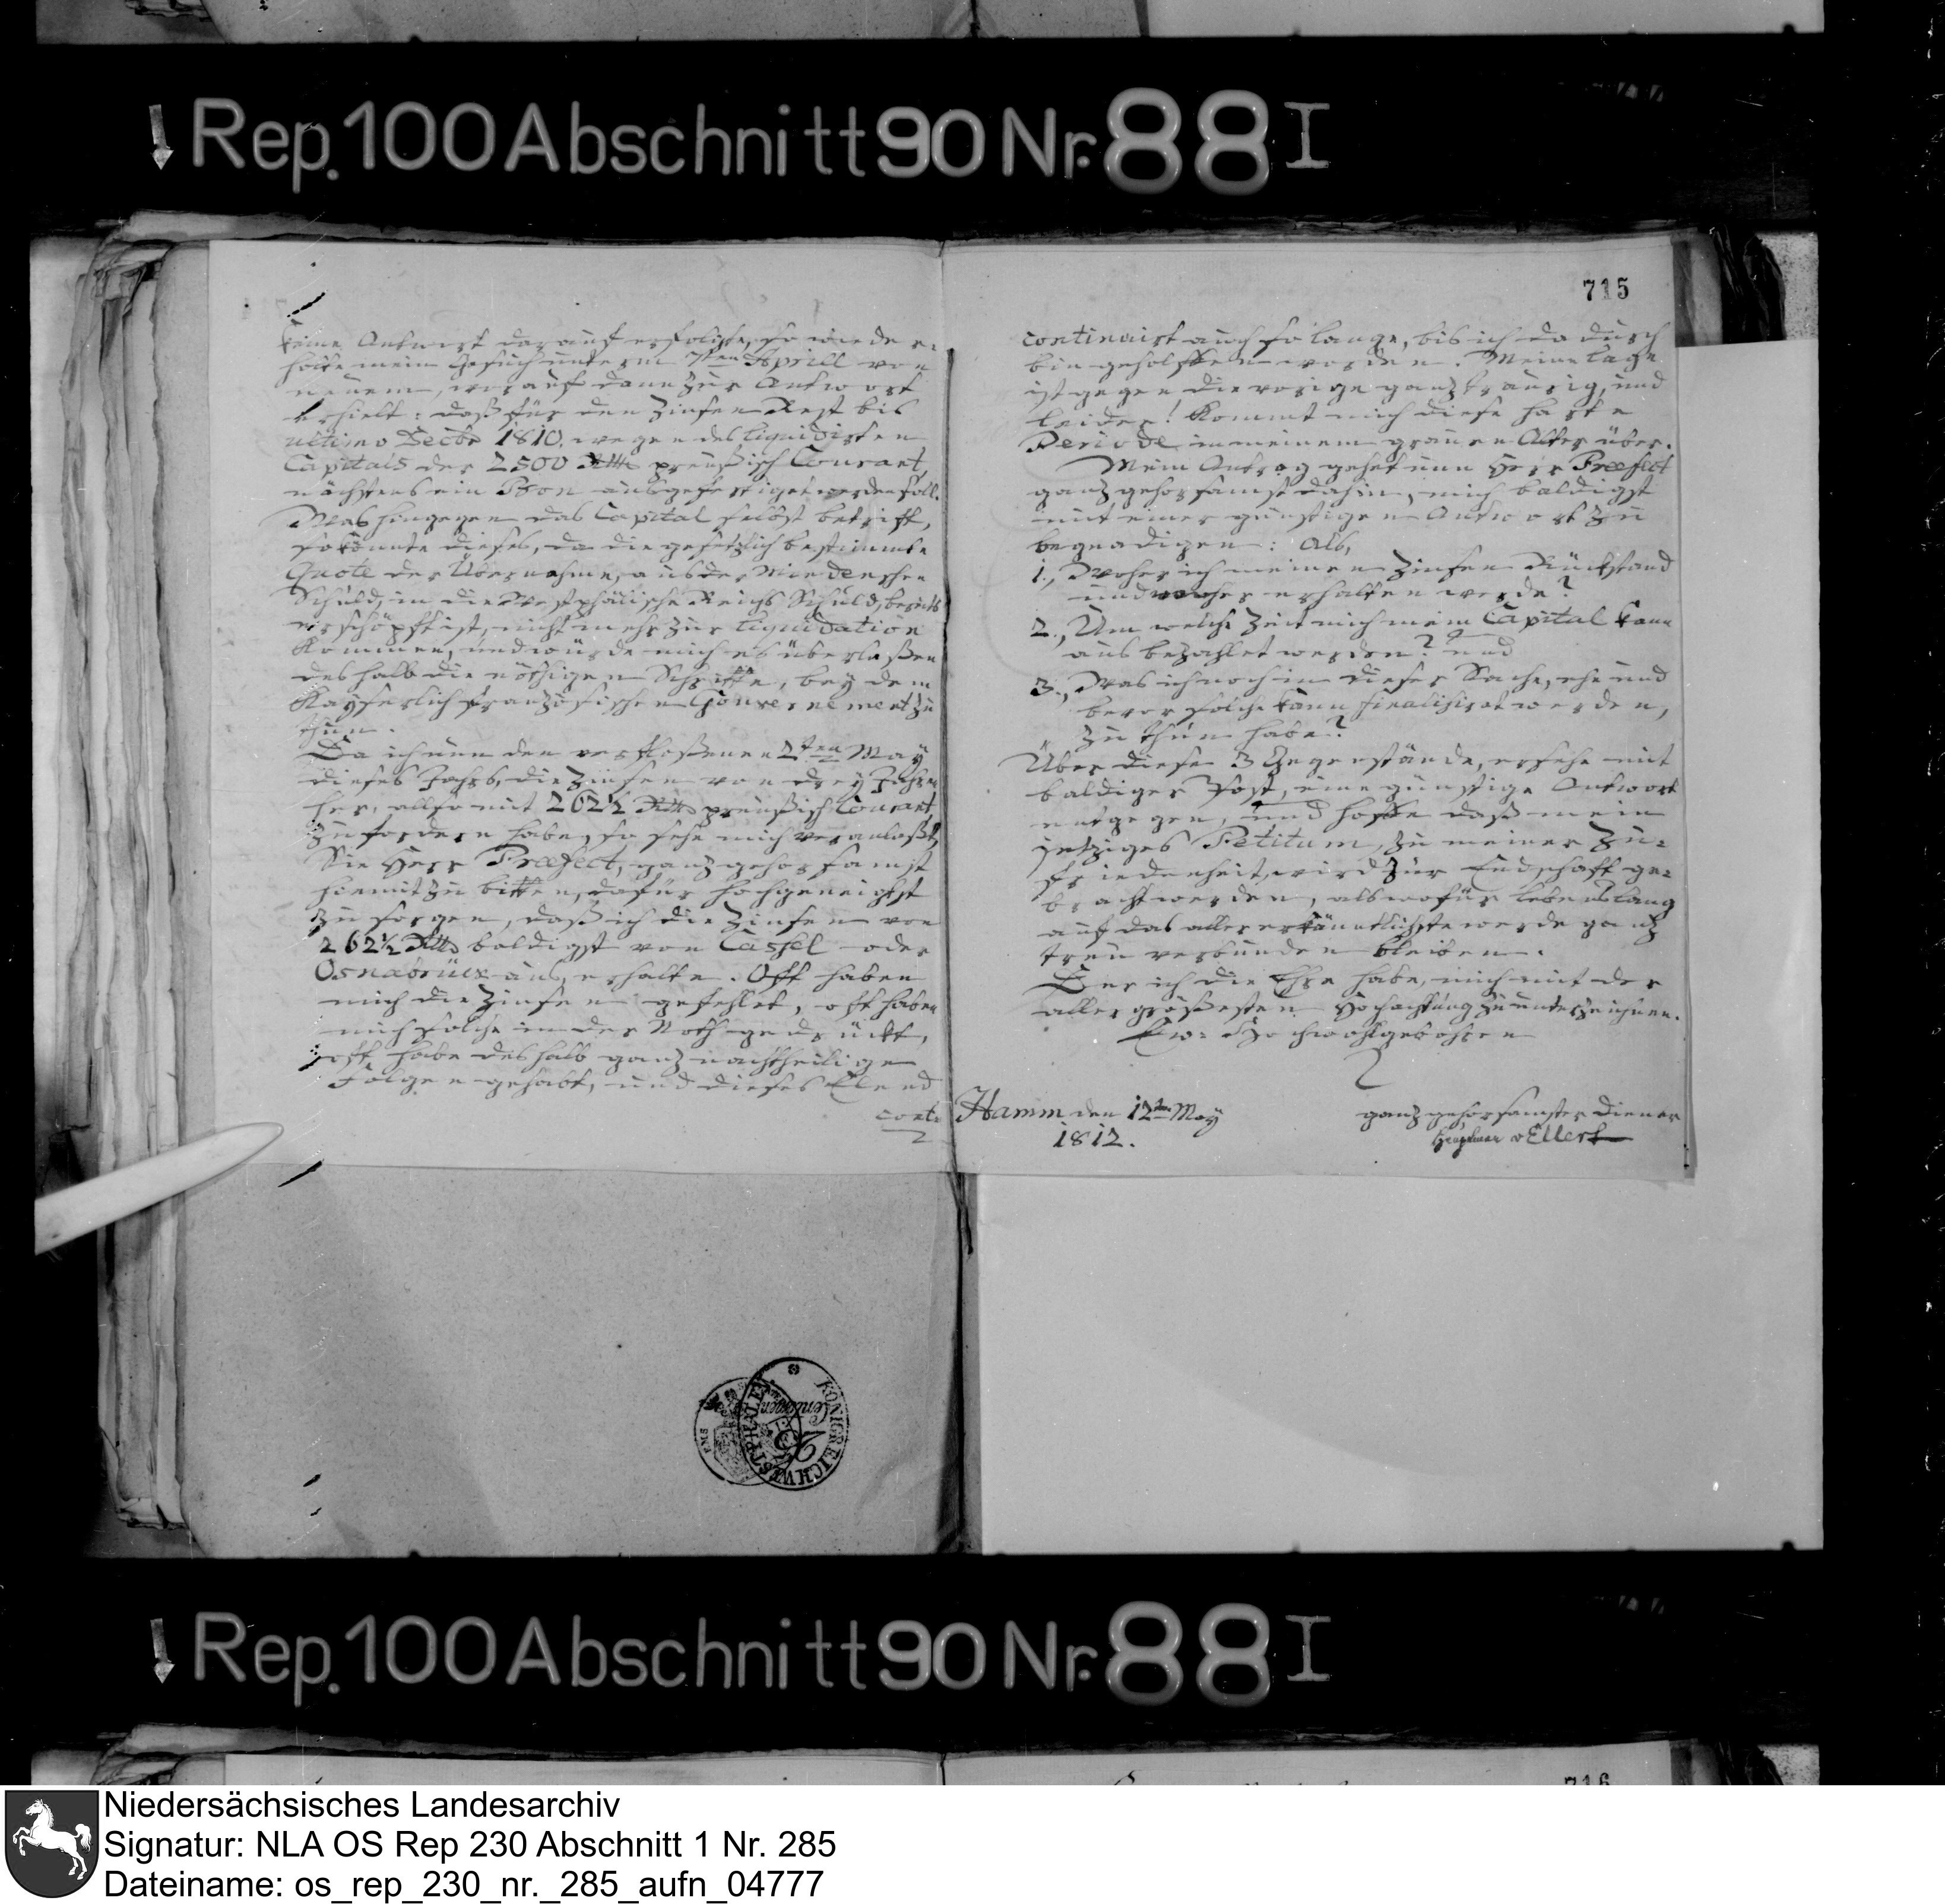 Rep. 100 Abschnitt 90 Nr. 88 I
keine Antwort darauf erfolgte, so wieder-
holte mein Gesuch unterm 7ten Aprill von
neuem, worauf dann zur Antwort
erhielt: daß für den Zinsen Rest bis
ultimo Decbr 1810. wegen des liquidirten
Capitals der 2500 Rthl preußisch Courant,
nächstens ein Bon ausgefertiget werden soll.
Was hingegen das Capital selbst betrift,
so könnte dieses, da die gesetzlich bestimmte
Quote der Übernahme, aus der Mindenschen
Schuld, in die Westphälische Reichs Schuld, bereits
erschöpft ist, nicht mehr zur liquidation
kommen, und würde mich es überlaßen
deshalb die nöthigen Schritte, bey dem
Kayserlich französischen Gouvernement zu
thun.
Da ich nun den verfloßenen 2ten May
dieses Jahrs, die Zinsen von drey Jahren
her, allso mit 262½ Rthl preußisch Courant,
zu fordern habe, so sehe mich veranlaßt,
Sie Herr Præfect, ganz gehorsamst
hiemit zu bitten, dafür hochgeneigtst
zu sorgen, daß ich die Zinsen von
262½ Rthl baldigst von Cassel oder
Osnabrück aus, erhalte. Oft haben
mich die Zinsen gefehlet, oft haben
mich solche in der Noth gedrückt,
oft habe deshalb ganz nachtheilige
Folgen gehabt, und dieses Elend
conti
715
continuirt auch so lange, bis ich dadurch
bin geholffen worden. Meine Lage
ist gegen die vorige ganz traurig, und
leider! kommt mich diese harte
Periode in meinem grauen Alter über.
Mein Antrag gehet nun Herr Præfect
ganz gehorsamst dahin, mich baldigst
mit einer günstigen Antwort zu
begnadigen: Als,
1., Woher ich meinen Zinsen Rückstand
und woher erhalten werde?
2., Um welche Zeit mich mein Capital kann
ausbezahlet werden? und
3., Was ich noch in dieser Sache, ehe und
bevor solche kann finalisirt werden,
zu thun habe?
Über diese 3 Gegenstände, ersehe mit
baldiger Post, eine günstige Antwort
entgegen, und hoffe daß mein
jetziges Petitum, zu meiner Zu-
friedenheit, wird zur Endschaft ge-
bracht werden, als wofür lebenslang
auf das allererkänntlichste werde ganz
treu verbunden bleiben.
Der ich die Ehre habe, mich mit der
allergrößesten Hochachtung zu unterzeichnen.
Ew: Hochwohlgebohren
Hamm den 12ten May
1812.
ganz gehorsamster Diener
Hauptman v Ellert
KÖNIGREICH WESTPHALEN
Rep. 100 Abschnitt 90 Nr. 88 I
716
Niedersächsisches Landesarchiv
Signatur: NLA OS Rep 230 Abschnitt 1 Nr. 285
Dateiname: os_rep_230_nr._285_aufn_04777